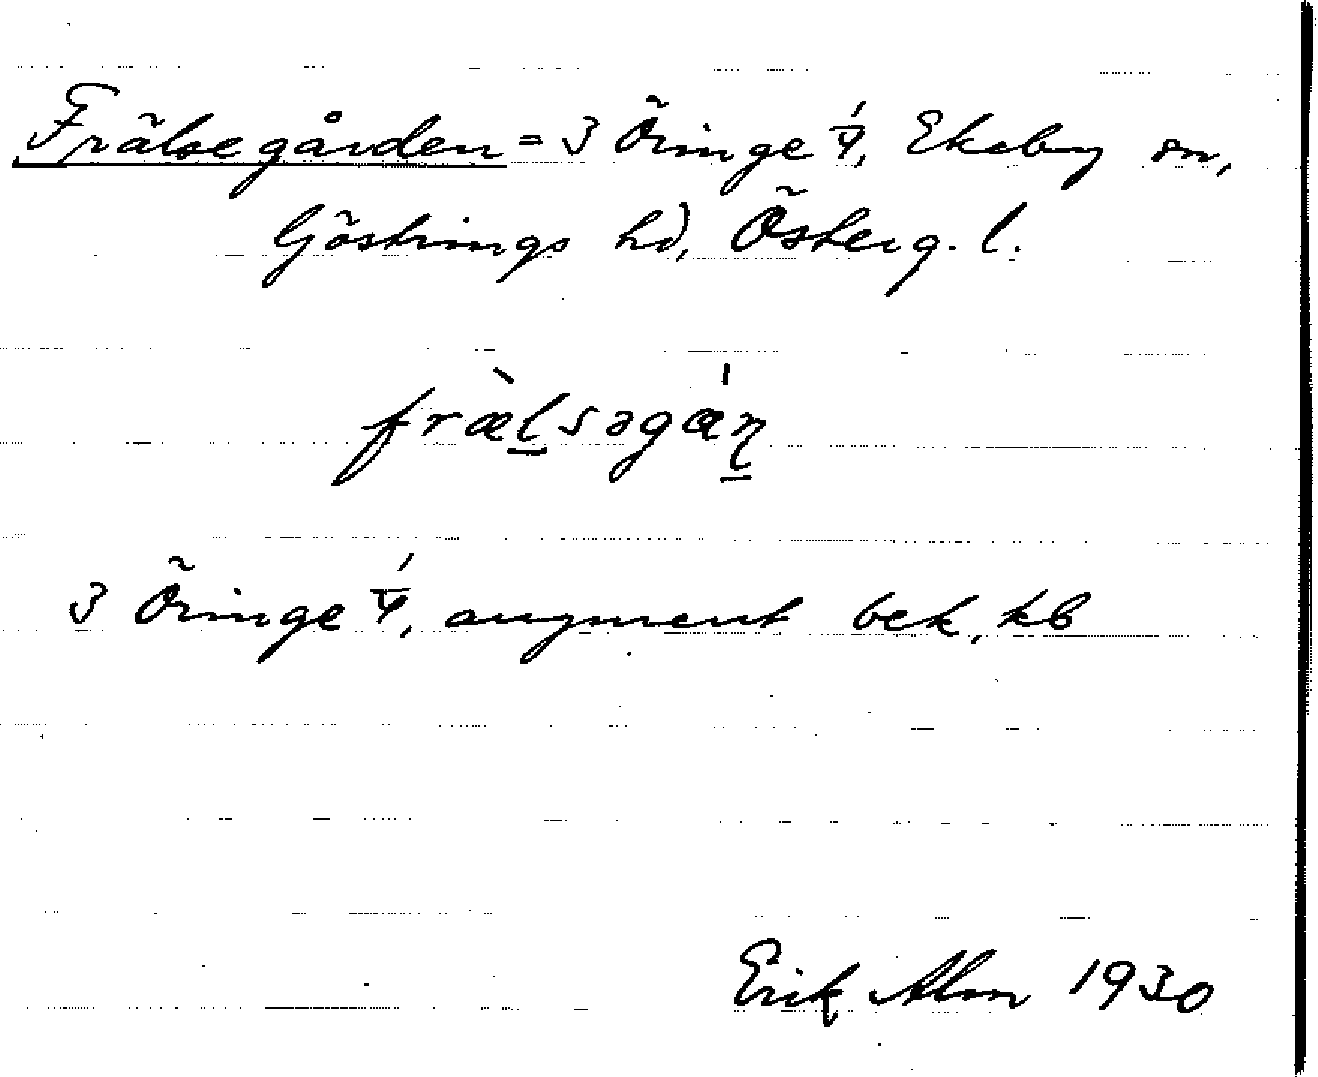 Frälsegården = 3 Öringe 1/4, Ekeby sn,
Göstrings hd, Österg. l.
fræ̀l̲səgǽn̲
3 Öringe 1/4, augment bek, kb
Erik Alm 1930